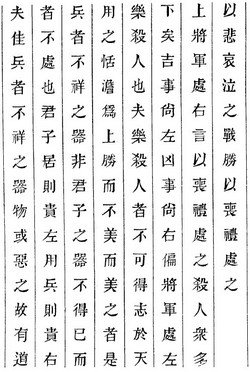 夫佳兵者不祥之器物或惡之故有道
者不處也君子居則貴左用兵則貴右
兵者不祥之器非君子之器不得已而
用之恬澹爲上勝而不美而美之者是
樂殺人也夫樂殺人者不可得志於天
下矣吉事尚左凶事尚右偏將軍處左
上將軍處右言以喪禮處之殺人衆多
以悲哀泣之戰勝以喪禮處之